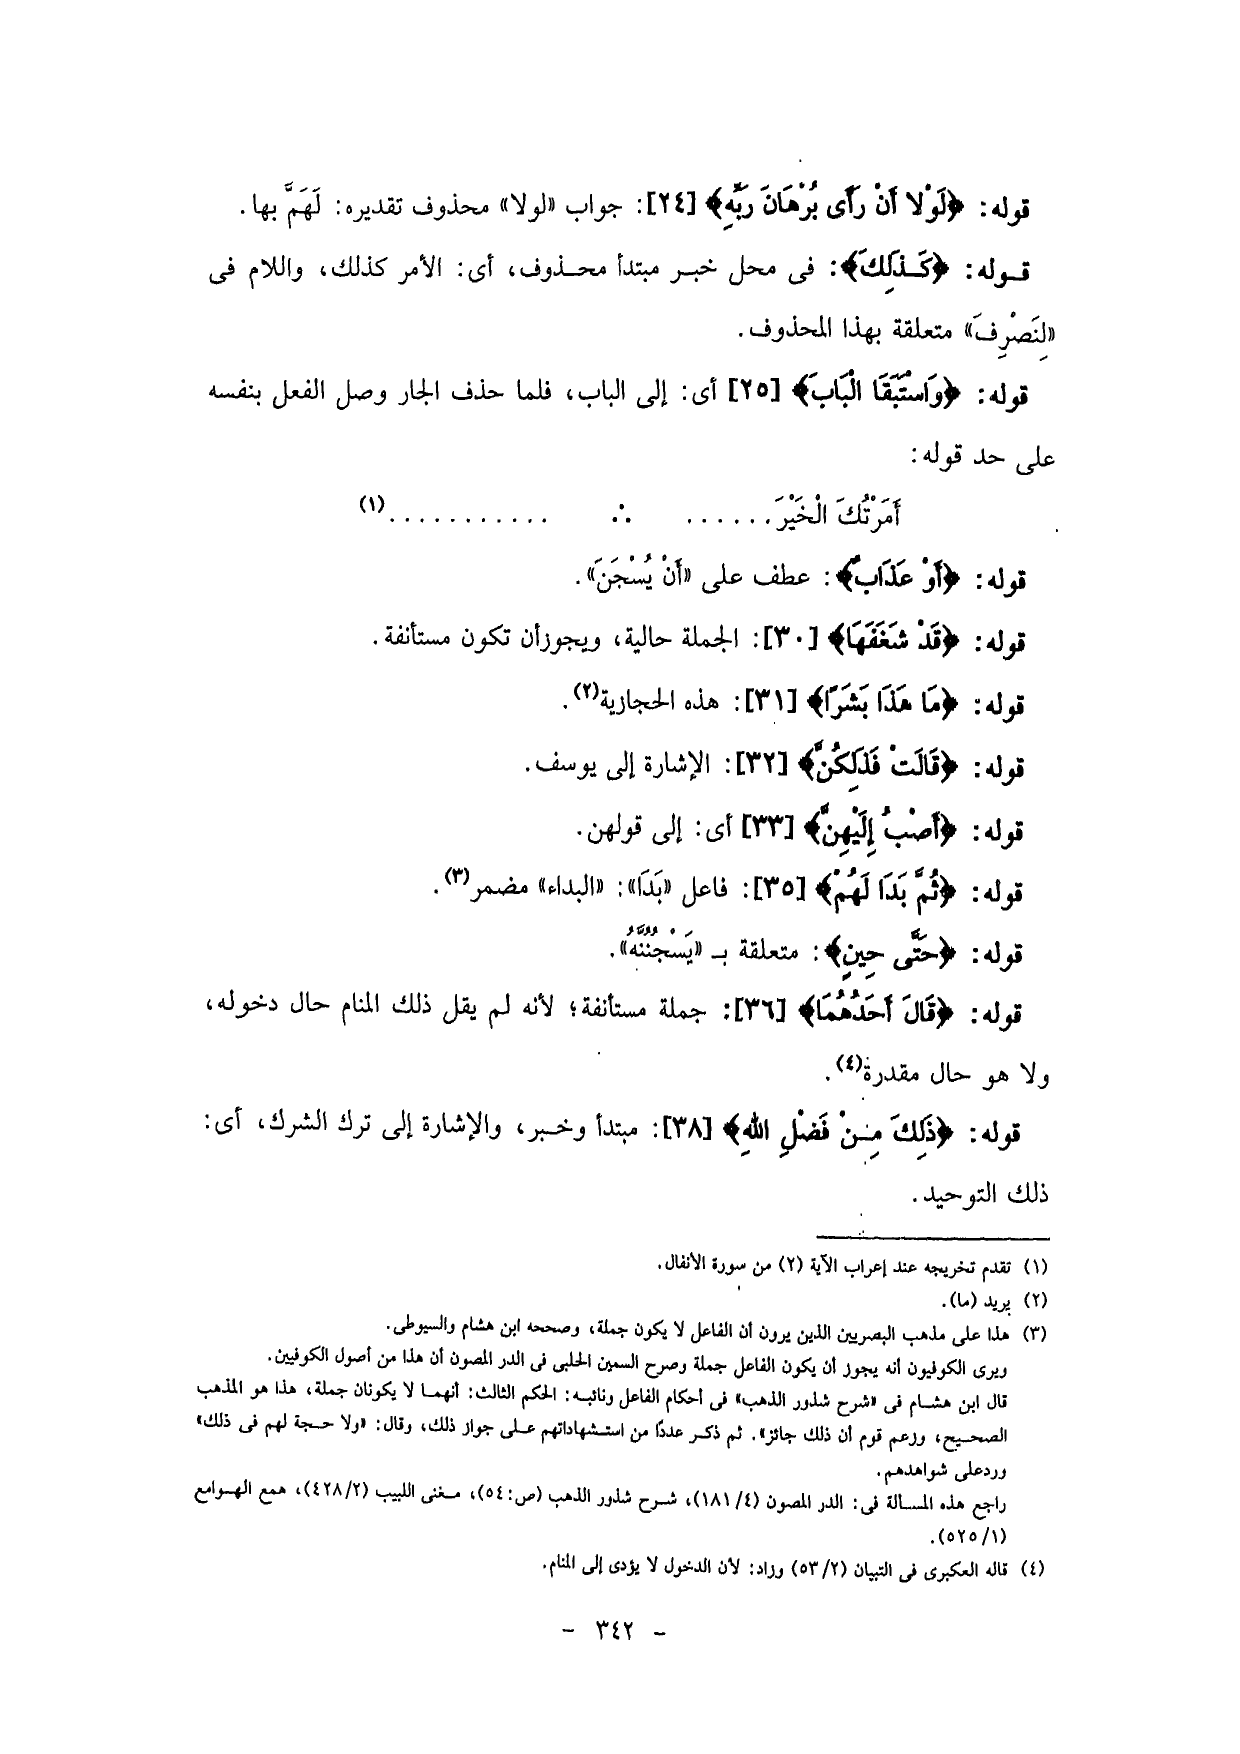 قوله: ﴿لَوْلا أَنْ رَأَى بُرْهَانَ رَبِّهِ﴾ [٢٤]: جواب «لولا» محذوف تقديره: لَهَمَّ بها.
قـوله: ﴿كَـذَلِكَ﴾: فى محل خبـر مبتدأ محـذوف، أى: الأمر كذلك، واللام فى
«لِنَصْرِفَ» متعلقة بهذا المحذوف.
قوله: ﴿وَاسْتَبَقَا الْبَابَ﴾ [٢٥] أى: إلى الباب، فلما حذف الجار وصل الفعل بنفسه
على حد قوله:
أَمَرْتُكَ الْخَيْرَ...... ∴ ...........(١)
قوله: ﴿أَوْ عَذَابٌ﴾: عطف على «أَنْ يُسْجَنَ».
قوله: ﴿قَدْ شَغَفَهَا﴾ [٣٠]: الجملة حالية، ويجوزأن تكون مستأنفة.
قوله: ﴿مَا هَذَا بَشَرًا﴾ [٣١]: هذه الحجازية(٢).
قوله: ﴿قَالَتْ فَذَلِكُنَّ﴾ [٣٢]: الإشارة إلى يوسف.
قوله: ﴿أَصْبُ إِلَيْهِنَّ﴾ [٣٣] أى: إلى قولهن.
قوله: ﴿ثُمَّ بَدَا لَهُمْ﴾ [٣٥]: فاعل «بَدَا»: «البداء» مضمر(٣).
قوله: ﴿حَتَّى حِينٍ﴾: متعلقة بـ «يَسْجُنُنَّهُ».
قوله: ﴿قَالَ أَحَدُهُمَا﴾ [٣٦]: جملة مستأنفة؛ لأنه لم يقل ذلك المنام حال دخوله،
ولا هو حال مقدرة(٤).
قوله: ﴿ذَلِكَ مِـنْ فَضْلِ اللهِ﴾ [٣٨]: مبتدأ وخـبر، والإشارة إلى ترك الشرك، أى:
ذلك التوحيد.
(١) تقدم تخريجه عند إعراب الآية (٢) من سورة الأنفال.
(٢) يريد (ما).
(٣) هذا على مذهب البصريين الذين يرون أن الفاعل لا يكون جملة، وصححه ابن هشام والسيوطى.
ويرى الكوفيون أنه يجوز أن يكون الفاعل جملة وصرح السمين الحلبى فى الدر المصون أن هذا من أصول الكوفيين.
قال ابن هشـام فى «شرح شذور الذهب» فى أحكام الفاعل ونائبه: الحكم الثالث: أنهمـا لا يكونان جملة، هذا هو المذهب
الصحـيح، وزعم قوم أن ذلك جائز». ثم ذكـر عددًا من استـشهاداتهم علـى جواز ذلك، وقال: «ولا حـجة لهم فى ذلك»
وردعلى شواهدهم.
راجع هذه المسـالة فى: الدر المصون (٤/ ١٨١)، شـرح شذور الذهب (ص:٥٤)، مـغنى اللبيب (٤٢٨/٢)، همع الهـوامع
(١/ ٥٢٥).
(٤) قاله العكبرى فى التبيان (٢/ ٥٣) وزاد: لأن الدخول لا يؤدى إلى المنام.
- ٣٤٢ -